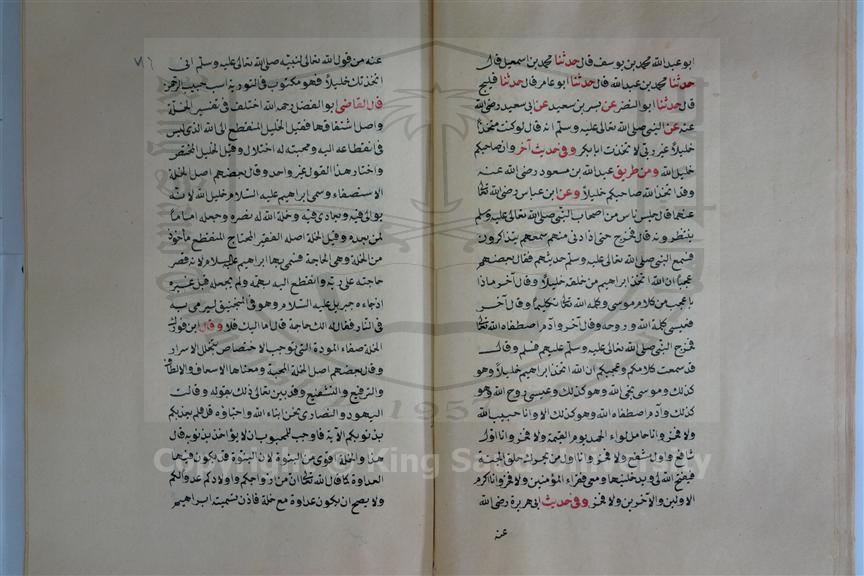 ابو عبد الله محمد بن يوسف قال حدثنا محمد بن اسمعيل قال
حدثنا محمد بن عبد الله قال حدثنا ابو عامر قال حدثنا فليح
قال حدثنا ابو النضر عن بسر بن سعيد عن ابى سعيد رضى الله
عنه عن النبى صلى الله تعالى عليه وسلم انه قال لو كنت متخذا
خليلا غير ربى لا تخذت ابا بكر وفى حديث آخر وان صاحبكم
خليل الله ومن طريق عبد الله بن مسعود رضى الله عنه
وقد اتخذ الله صاحبكم خليلا وعن ابن عباس رضى الله تعالى
عنهما قال جلس ناس من اصحاب النبى صلى الله تعالى عليه وسلم
ينتظرونه قال فخرج حتى اذا دنى منهم سمعهم يتذاكرون
فسمع النبى صلى الله تعالى عليه وسلم حديثهم فقال بعضهم
عجبا ان الله اتخذ ابراهيم من خلقه خليلا وقال آخر ماذا
باعجب من كلام موسى وكلمه الله تعالى تكليما وقال آخر
فعيسى كلمة الله وروحه وقال آخر وآدم اصطفاه الله تعالى
فخرج النبى صلى الله تعالى عليه وسلم عليهم فسلم وقال
قد سمعت كلامكم وعجبكم ان الله اتخذ ابراهيم خليلا وهو
كذلك وموسى نجى الله وهو كذلك وعيسى روح الله وهو
كذلك وآدم اصطفاه الله وهو كذلك الا وانا حبيب الله
ولا فخر وانا حامل لواء الحمد يوم القيمة ولا فخر وانا اول
شافع واول مشفع ولا فخر وانا اول من يحرك حلق الجنة
فيفتح الله لى ويدخلنيها ومعى فقراء المؤمنين ولا فخر وانا اكرم
الاولين والآخرين ولا فخر وفى حديث ابى هريرة رضى الله
عنه
٧٦
عنه من قول الله تعالى لنبيه صلى الله تعالى عليه وسلم انى
اتخذتك خليلا فهو مكتوب فى التورية حبيب الرحمن
قال القاضى ابو الفضل رحمه الله اختلف فى تفسير الخلة
واصل اشتقاقها فقيل الخليل المنقطع الى الله الذى ليس
فى انقطاعه اليه ومحبته له اختلال وقيل الخليل المختص
واختار هذا القول غير واحد وقال بعضهم اصل الخلة
الاستصفاء وسمى ابراهيم عليه السلام خليل الله لانه
يوالى فيه ويعادى فيه وخلة الله له نصره وجعله اماما
لمن بعده وقيل الخلة اصله الفقير المحتاج المنقطع مأخوذ
من الخلة وهى الحاجة فسمى بها ابراهيم عليه السلام لانه قصر
حاجته على ربه وانقطع اليه بهمه ولم يجعله قبل غيره
اذ جاءه جبريل عليه السلام وهو فى المنجنيق ليرمى به
فى النار فقال له الك حاجة قال اما اليك فلا وقال ابن فورك
الخلة صفاء المودة التى توجب الاختصاص بتخلل الاسرار
وقال بعضهم اصل الخلة المحبة ومعناها الاسعاف والالطاف
والترفيع والتشفيع وقد بين تعالى ذلك بقوله وقالت
اليهود والنصارى نحن ابناء الله واحباؤه قل فلم يعذبكم
بذنوبكم الآية فاوجب للمحبوب ان لا يؤاخذ بذنوبه قال
هذا والخلة اقوى من البنوة لان البنوة قد يكون فيها
العداوة كما قال الله تعالى ان من ازواجكم واولادكم عدوا لكم
ولا يصح ان يكون عداوة مع خلة فاذن تسميت ابراهيم
Copyright © King Saud University
1957